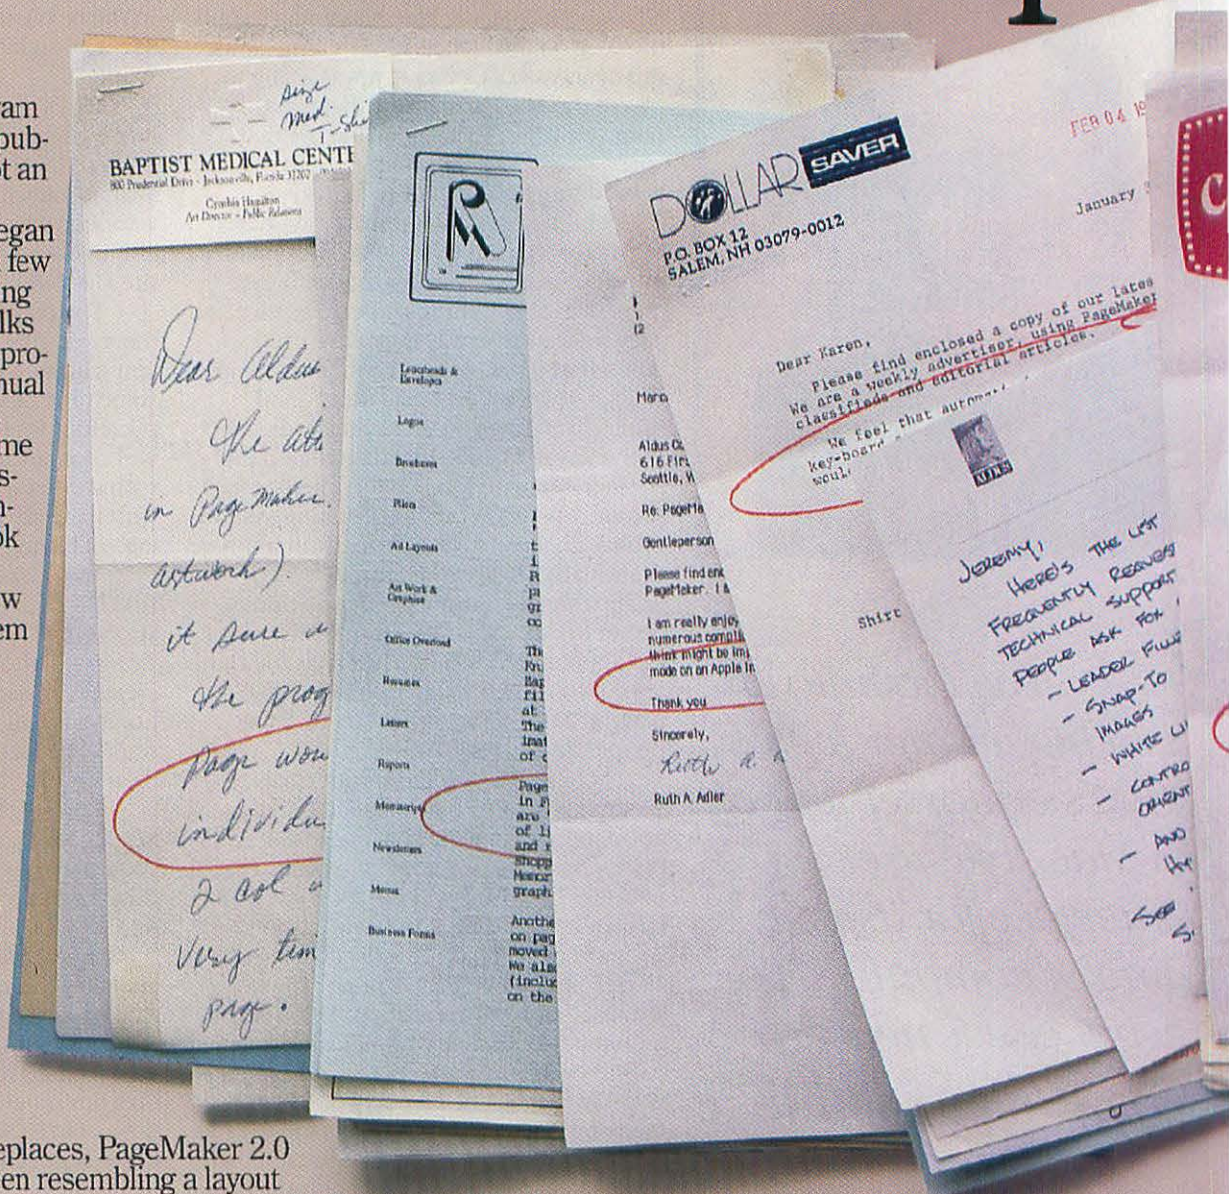 am
pub-
ot an
egan
few
ng
lks
pro-
nual
me
s-
n-
ok
w
em
size
Med.
T-Shi
BAPTIST MEDICAL CENTE
800 Prudential Drive - Jacksonville, Florida 32207
Cynthia Hamilton
Art Director - Public Relations
Dear Aldus
the
in PageMaker.
artwork).
it sure
the prog
page wou
individu
2 col
very
page.
Letterheads &
Envelopes
Logos
Brochures
Fliers
Ad Layouts
Art Work &
Graphics
Office Overload
Resumes
Letters
Reports
Manuscripts
Newsletters
Menus
Business Forms
The
fil
at
The
imat
of
Page
in
are
of li
and
Shopp
Memor
graph
Anothe
on pag
moved
We also
(includ
on the
Marc
Aldus Co
616 Firs
Seattle, W
Re: PageMa
Gentleperson
Please find enc
PageMaker. I
I am really enjoy
numerous compli
think might be im
made on an Apple Im
Thank you
Sincerely,
Ruth A.
Ruth A. Adler
DOLLAR SAVER
P.O. BOX 12
SALEM, NH 03079-0012
FEB 04 19
January
Dear Karen,
Please find enclosed a copy of our lates
We are a weekly advertiser, using PageMaker
classifieds and editorial articles.
We feel that autom
key-board
woul
Shirt
ALDUS
JEREMY,
HERE'S THE LIST
FREQUENTLY REQUEST
TECHNICAL SUPPORT
PEOPLE ASK FOR
- LEADER FILL
- SNAP-TO
IMAGES
- WHITE LI
- CONTRO
ORIENT
- AND
HY
SEE
S.
C
eplaces, PageMaker 2.0
en resembling a layout